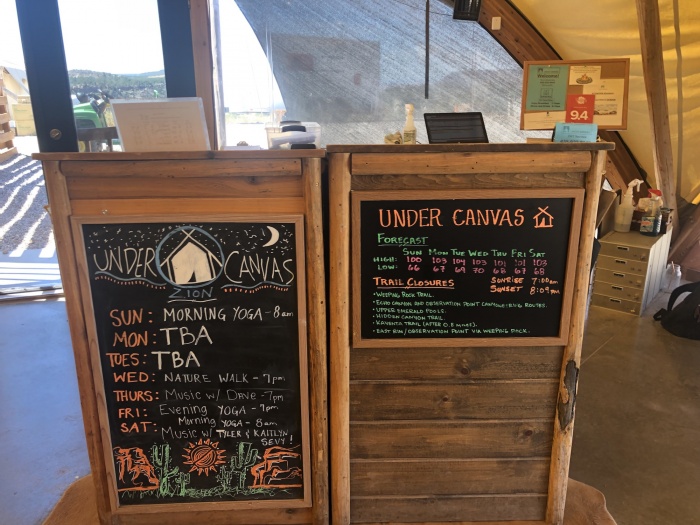 UNDER CANVAS
ZION
SUN: MORNING YOGA - 8am
MON: TBA
TUES: TBA
WED: NATURE WALK - 7pm
THURS: Music w/ Dave - 7pm
FRI: Evening YOGA - 7pm
SAT: Morning YOGA - 8am
Music w/ TYLER & KAITLYN
SEVY!
Welcome
9.4
UNDER CANVAS
FORECAST
SUN MON TUE WED THU FRI SAT
HIGH: 100 103 104 103 101 101 103
LOW: 66 67 69 70 68 67 68
TRAIL CLOSURES
SUNRISE 7:00am
SUNSET 8:09pm
• WEEPING ROCK TRAIL.
• ECHO CANYON AND OBSERVATION POINT ROUTES.
• UPPER EMERALD POOLS.
• HIDDEN CANYON TRAIL.
• KAYENTA TRAIL (AFTER 0.8 MILES).
• EAST RIM/OBSERVATION POINT VIA WEEPING ROCK.